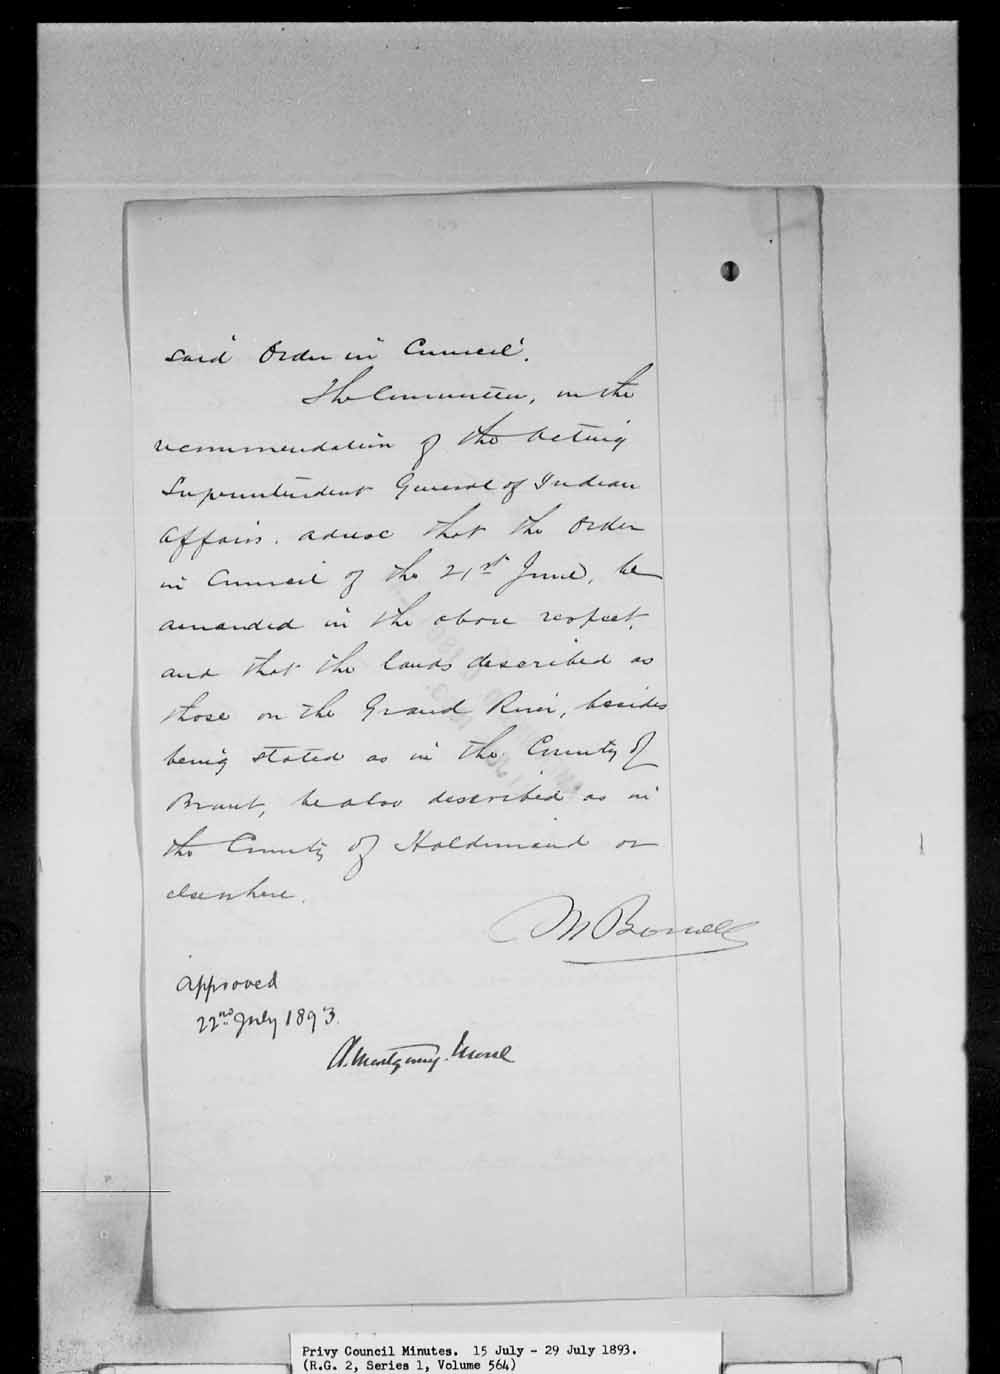 said Order in Council.
The Committee, on the
recommendation of the Acting
Superintendent General of Indian
Affairs, advise that the Order
in Council of the 21st June, be
amended in the above respect,
and that the lands described as
those on the Grand River, besides
being stated as in the County of
Brant, be also described as in
the County of Haldimand or
elsewhere.
M Bowell
Approved
22nd July 1893.
A. Montgomery Moore
Privy Council Minutes. 15 July - 29 July 1893.
(R.G. 2, Series 1, Volume 564)